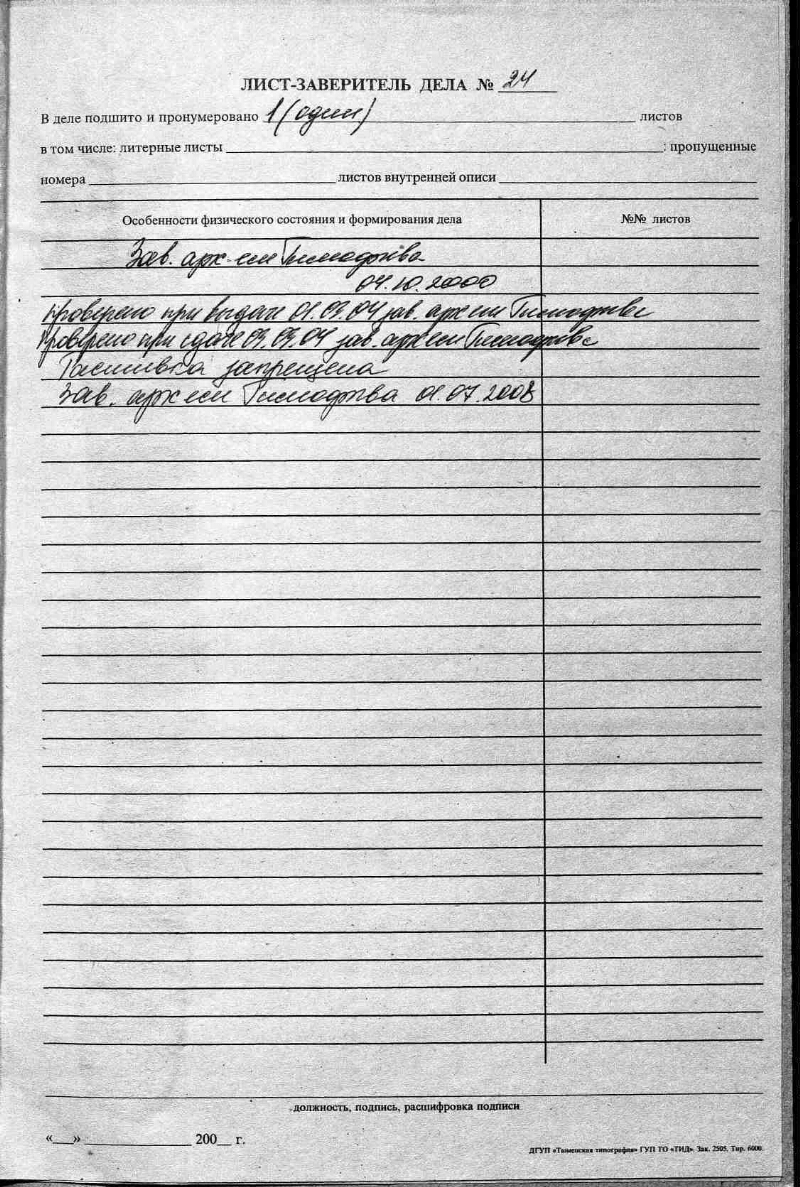 ЛИСТ-ЗАВЕРИТЕЛЬ ДЕЛА № 24
В деле подшито и пронумеровано 1 (один) листов
в том числе: литерные листы : пропущенные
номера листов внутренней описи
Особенности физического состояния и формирования дела №№ листов
Зав. арх-ем Тимофеева
04.10.2000
Проверено при выдаче 01.09.04 зав. архем Тимофеева
Проверено при сдаче 09.09.04 зав. архем Тимофеева
Расшивка запрещена
Зав. архем Тимофеева 01.07.2008
должность, подпись, расшифровка подписи
«__» 200__ г.
ДГУП «Тюменская типография» ГУП ТО «ТИД». Зак. 2505. Тир. 6000